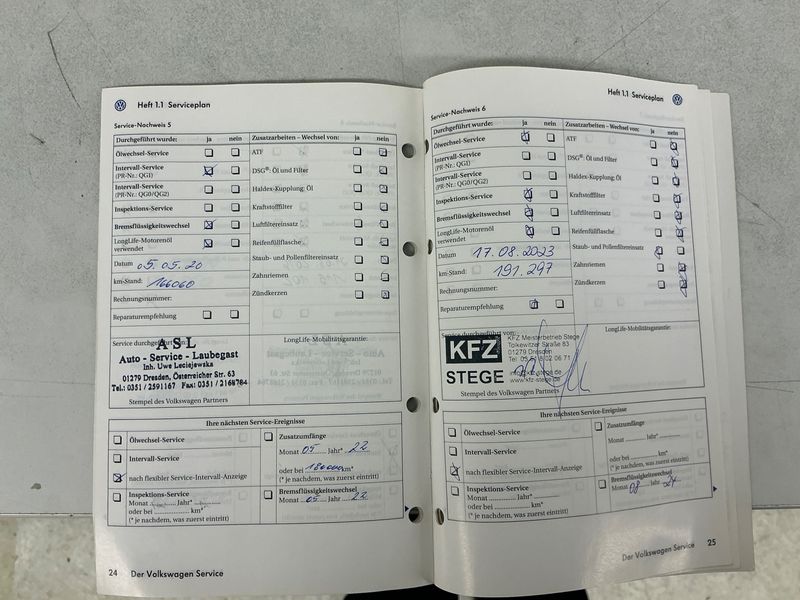 Heft 1.1 Serviceplan
Service-Nachweis 5
Durchgeführt wurde: ja nein
Ölwechsel-Service
Intervall-Service
(PR-Nr.: QG1)
Intervall-Service
(PR-Nr.: QG0/QG2)
Inspektions-Service
Bremsflüssigkeitswechsel
LongLife-Motorenöl
verwendet
Datum 05.05.20
km-Stand: 166060
Rechnungsnummer:
Reparaturempfehlung
Zusatzarbeiten – Wechsel von: ja nein
ATF
DSG®: Öl und Filter
Haldex-Kupplung: Öl
Kraftstofffilter
Luftfiltereinsatz
Reifenfüllflasche
Staub- und Pollenfiltereinsatz
Zahnriemen
Zündkerzen
Service durchgeführt von:
ASL
Auto - Service - Laubegast
Inh. Uwe Leciejewska
01279 Dresden, Österreicher Str. 63
Tel.: 0351 / 2591167 Fax: 0351 / 2168784
Stempel des Volkswagen Partners
LongLife-Mobilitätsgarantie:
Ihre nächsten Service-Ereignisse
Ölwechsel-Service
Intervall-Service
nach flexibler Service-Intervall-Anzeige
Inspektions-Service
Monat Jahr*
oder bei km*
(* je nachdem, was zuerst eintritt)
Zusatzumfänge
Monat 05 Jahr* 22
oder bei 180000 km*
(* je nachdem, was zuerst eintritt)
Bremsflüssigkeitswechsel
Monat 05 Jahr 22
24 Der Volkswagen Service
Heft 1.1 Serviceplan
Service-Nachweis 6
Durchgeführt wurde: ja nein
Ölwechsel-Service
Intervall-Service
(PR-Nr.: QG1)
Intervall-Service
(PR-Nr.: QG0/QG2)
Inspektions-Service
Bremsflüssigkeitswechsel
LongLife-Motorenöl
verwendet
Datum 17.08.2023
km-Stand: 191.297
Rechnungsnummer:
Reparaturempfehlung
Zusatzarbeiten – Wechsel von: ja nein
ATF
DSG®: Öl und Filter
Haldex-Kupplung: Öl
Kraftstofffilter
Luftfiltereinsatz
Reifenfüllflasche
Staub- und Pollenfiltereinsatz
Zahnriemen
Zündkerzen
Service durchgeführt von:
KFZ
STEGE
KFZ Meisterbetrieb Stege
Tolkewitzer Straße 83
01279 Dresden
www.kfz-stege.de
Stempel des Volkswagen Partners
LongLife-Mobilitätsgarantie:
Ihre nächsten Service-Ereignisse
Ölwechsel-Service
Intervall-Service
nach flexibler Service-Intervall-Anzeige
Inspektions-Service
Monat Jahr*
oder bei km*
(* je nachdem, was zuerst eintritt)
Zusatzumfänge
Monat Jahr*
oder bei km*
(* je nachdem, was zuerst eintritt)
Bremsflüssigkeitswechsel
Monat 08 Jahr
Der Volkswagen Service 25